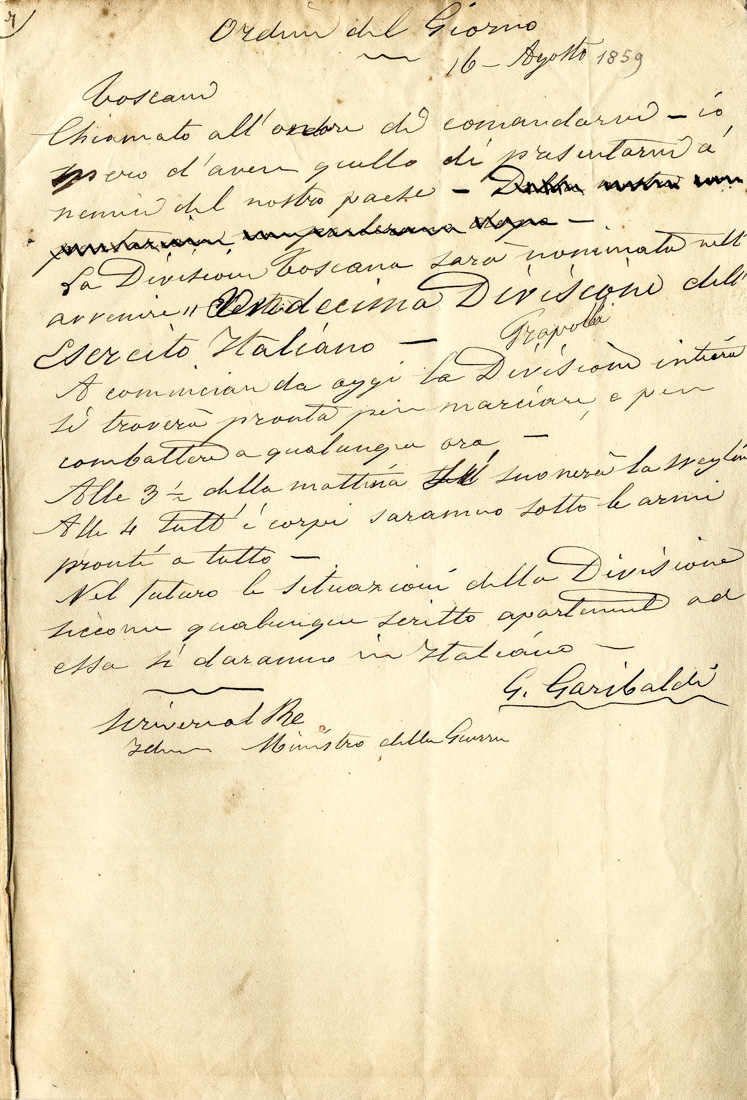 Ordine del Giorno
16 – Agosto 1859
Toscani
Chiamato all'onore di comandarvi – io
spero d'aver quello di presentarvi a'
nemici del nostro paese –
La Divisione Toscana sarà nominata nell'
avvenire " Undecima Divisione dell'
Esercito Italiano –
A cominciar da oggi la Divisione intiera
si troverà pronta per marciare, e per
combattere a qualunque ora –
Alle 3 ½ della mattina suonerà la sveglia
Alle 4 tutt'i corpi saranno sotto le armi
pronti a tutto –
Nel futuro le situazioni della Divisione
siccome qualunque scritto apartenente ad
essa si daranno in Italiano –
G. Garibaldi
scriver al Re
Idem Ministro della Guerra